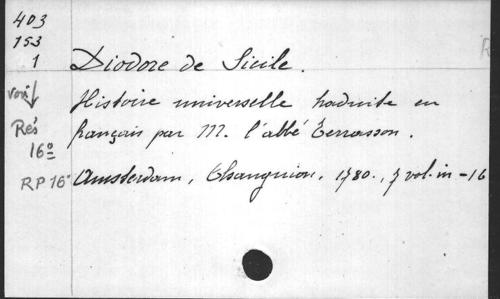 403
153
1
Diodore de Sicile.
voir
Histoire universelle traduite en
Rés
français par M. l'abbé Terrasson.
16º
RP 16º
Amsterdam, Changuion, 1780., 7 vol. in-16
R